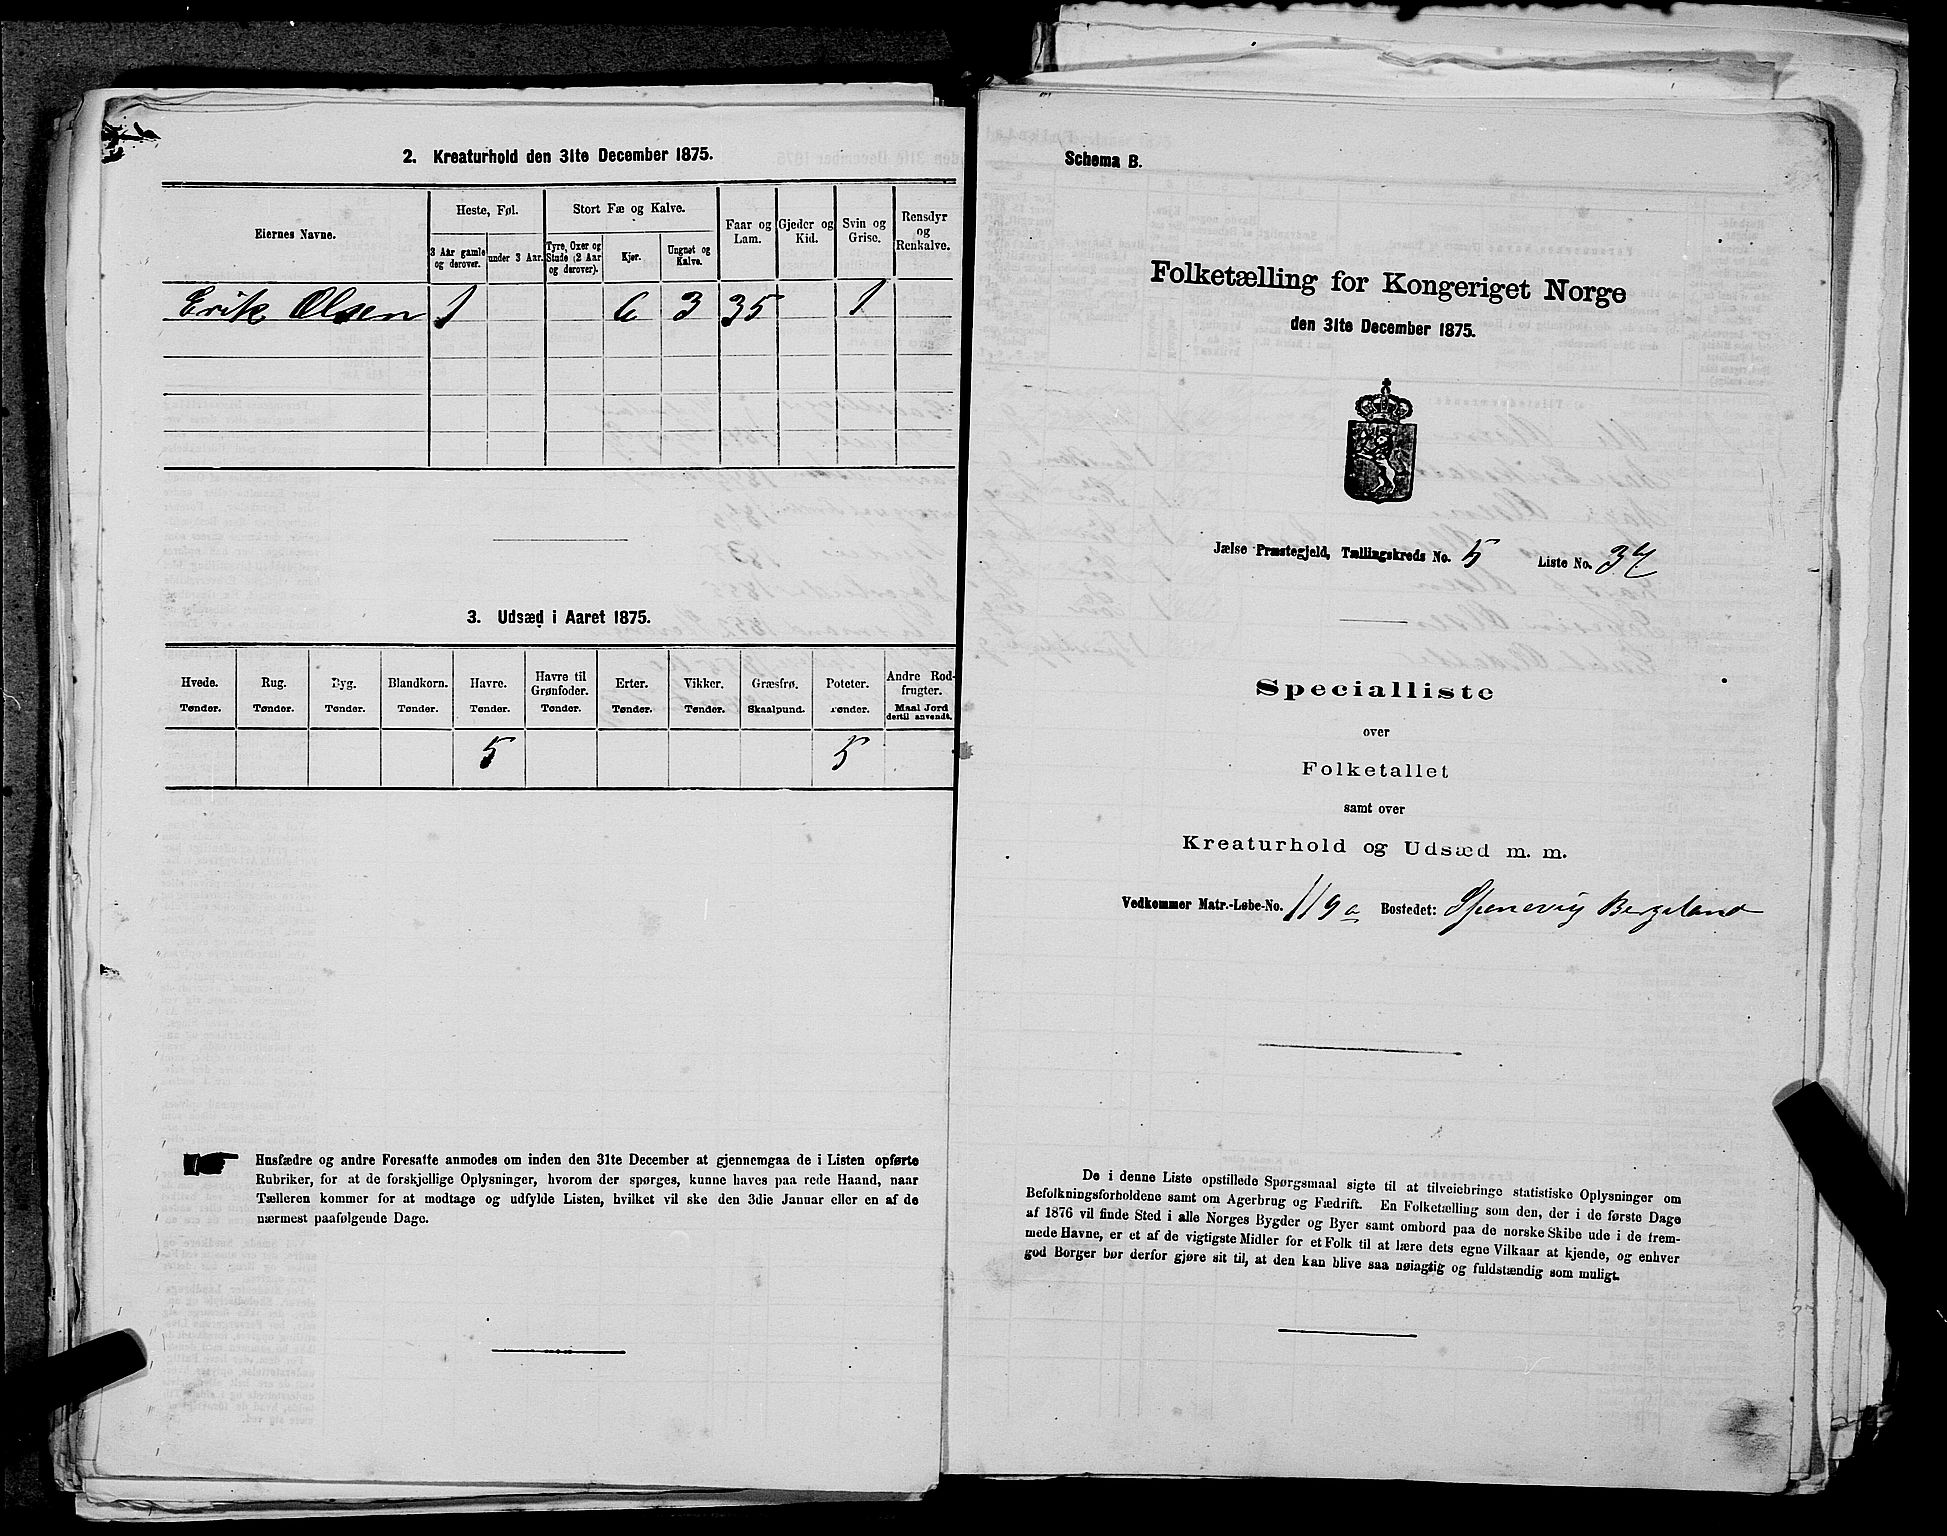 2. Kreaturhold den 31te December 1875.
Eiernes Navne.
Heste, Føl.
3 Aar gamle og derover.
under 3 Aar.
Stort Fæ og Kalve.
Tyre, Oxer og Stude (2 Aar og derover).
Kjør.
Ungnøt og Kalve.
Faar og Lam.
Gjeder og Kid.
Svin og Grise.
Rensdyr og Renkalve.
Erik Olsen 1 6 3 35 1
3. Udsæd i Aaret 1875.
Hvede. Rug. Byg. Blandkorn. Havre. Havre til Grønfoder. Erter. Vikker. Græsfrø. Poteter. Andre Rodfrugter.
Tønder. Tønder. Tønder. Tønder. Tønder. Tønder. Tønder. Tønder. Skaalpund. Tønder. Maal Jord dertil anvendt.
5 5
Husfædre og andre Foresatte anmodes om inden den 31te December at gjennemgaa de i Listen opførte
Rubriker, for at de forskjellige Oplysninger, hvorom der spørges, kunne haves paa rede Haand, naar
Tælleren kommer for at modtage og udfylde Listen, hvilket vil ske den 3die Januar eller en af de
nærmest paafølgende Dage.
Schema B.
Folketælling for Kongeriget Norge
den 31te December 1875.
Jælse Præstegjeld, Tællingskreds No. 5 Liste No. 34
Specialliste
over
Folketallet
samt over
Kreaturhold og Udsæd m. m.
Vedkommer Matr.-Løbe-No. 119a Bostedet: Spanevig Bergeland
De i denne Liste opstillede Spørgsmaal sigte til at tilveiebringe statistiske Oplysninger om
Befolkningsforholdene samt om Agerbrug og Fædrift. En Folketælling som den, der i de første Dage
af 1876 vil finde Sted i alle Norges Bygder og Byer samt ombord paa de norske Skibe ude i de frem-
mede Havne, er et af de vigtigste Midler for et Folk til at lære dets egne Vilkaar at kjende, og enhver
god Borger bør derfor gjøre sit til, at den kan blive saa nøiagtig og fuldstændig som muligt.